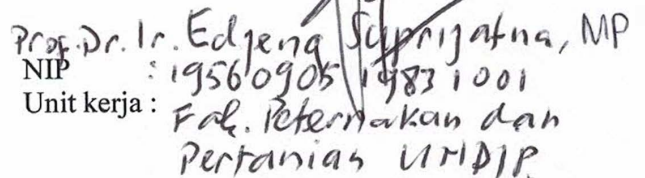 Prof. Dr. Ir. Edjeng Suprijatna, MP
NIP : 19560905 19831001
Unit kerja : Fak. Peternakan dan
Pertanian UNDIP